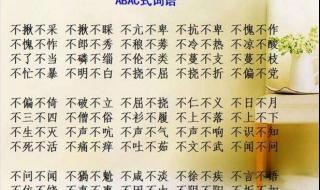 ABAC式词语
不揪不采 不揪不睬 不亢不卑 不抗不卑 不愧不作
不愧不怍 不郎不秀 不稂不莠 不冷不热
不了不当 不磷不缁 不伦不类 不蔓不支 不蔓不枝
不忙不暴 不明不白 不挠不屈 不挠不折 不偏不党
不偏不倚 不破不立 不屈不挠 不仁不义 不日不月
不三不四 不僧不俗 不衫不履 不上不下
不生不灭 不声不吭 不声不气 不声不响 不识不知
不死不活 不痛不痒 不吐不茹 不文不武 不闻不问
不问不闻 不咸不淡 不徐不疾 不言不语